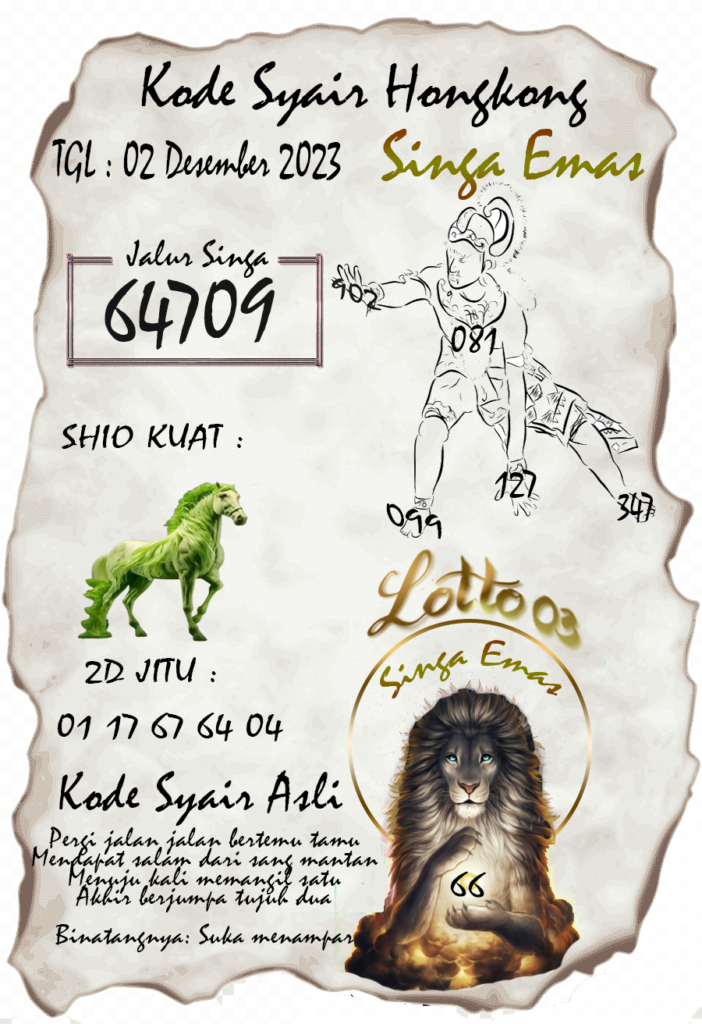 Kode Syair Hongkong
TGL : 02 Desember 2023
Singa Emas
Jalur Singa
64709
902
081
127
099
347
SHIO KUAT :
Lotto 03
Singa Emas
66
2D JITU :
01 17 67 64 04
Kode Syair Asli
Pergi jalan jalan bertemu tamu
Mendapat salam dari sang mantan
Menuju kali memangil satu
Akhir berjumpa tujuh dua
Binatangnya: Suka menampar